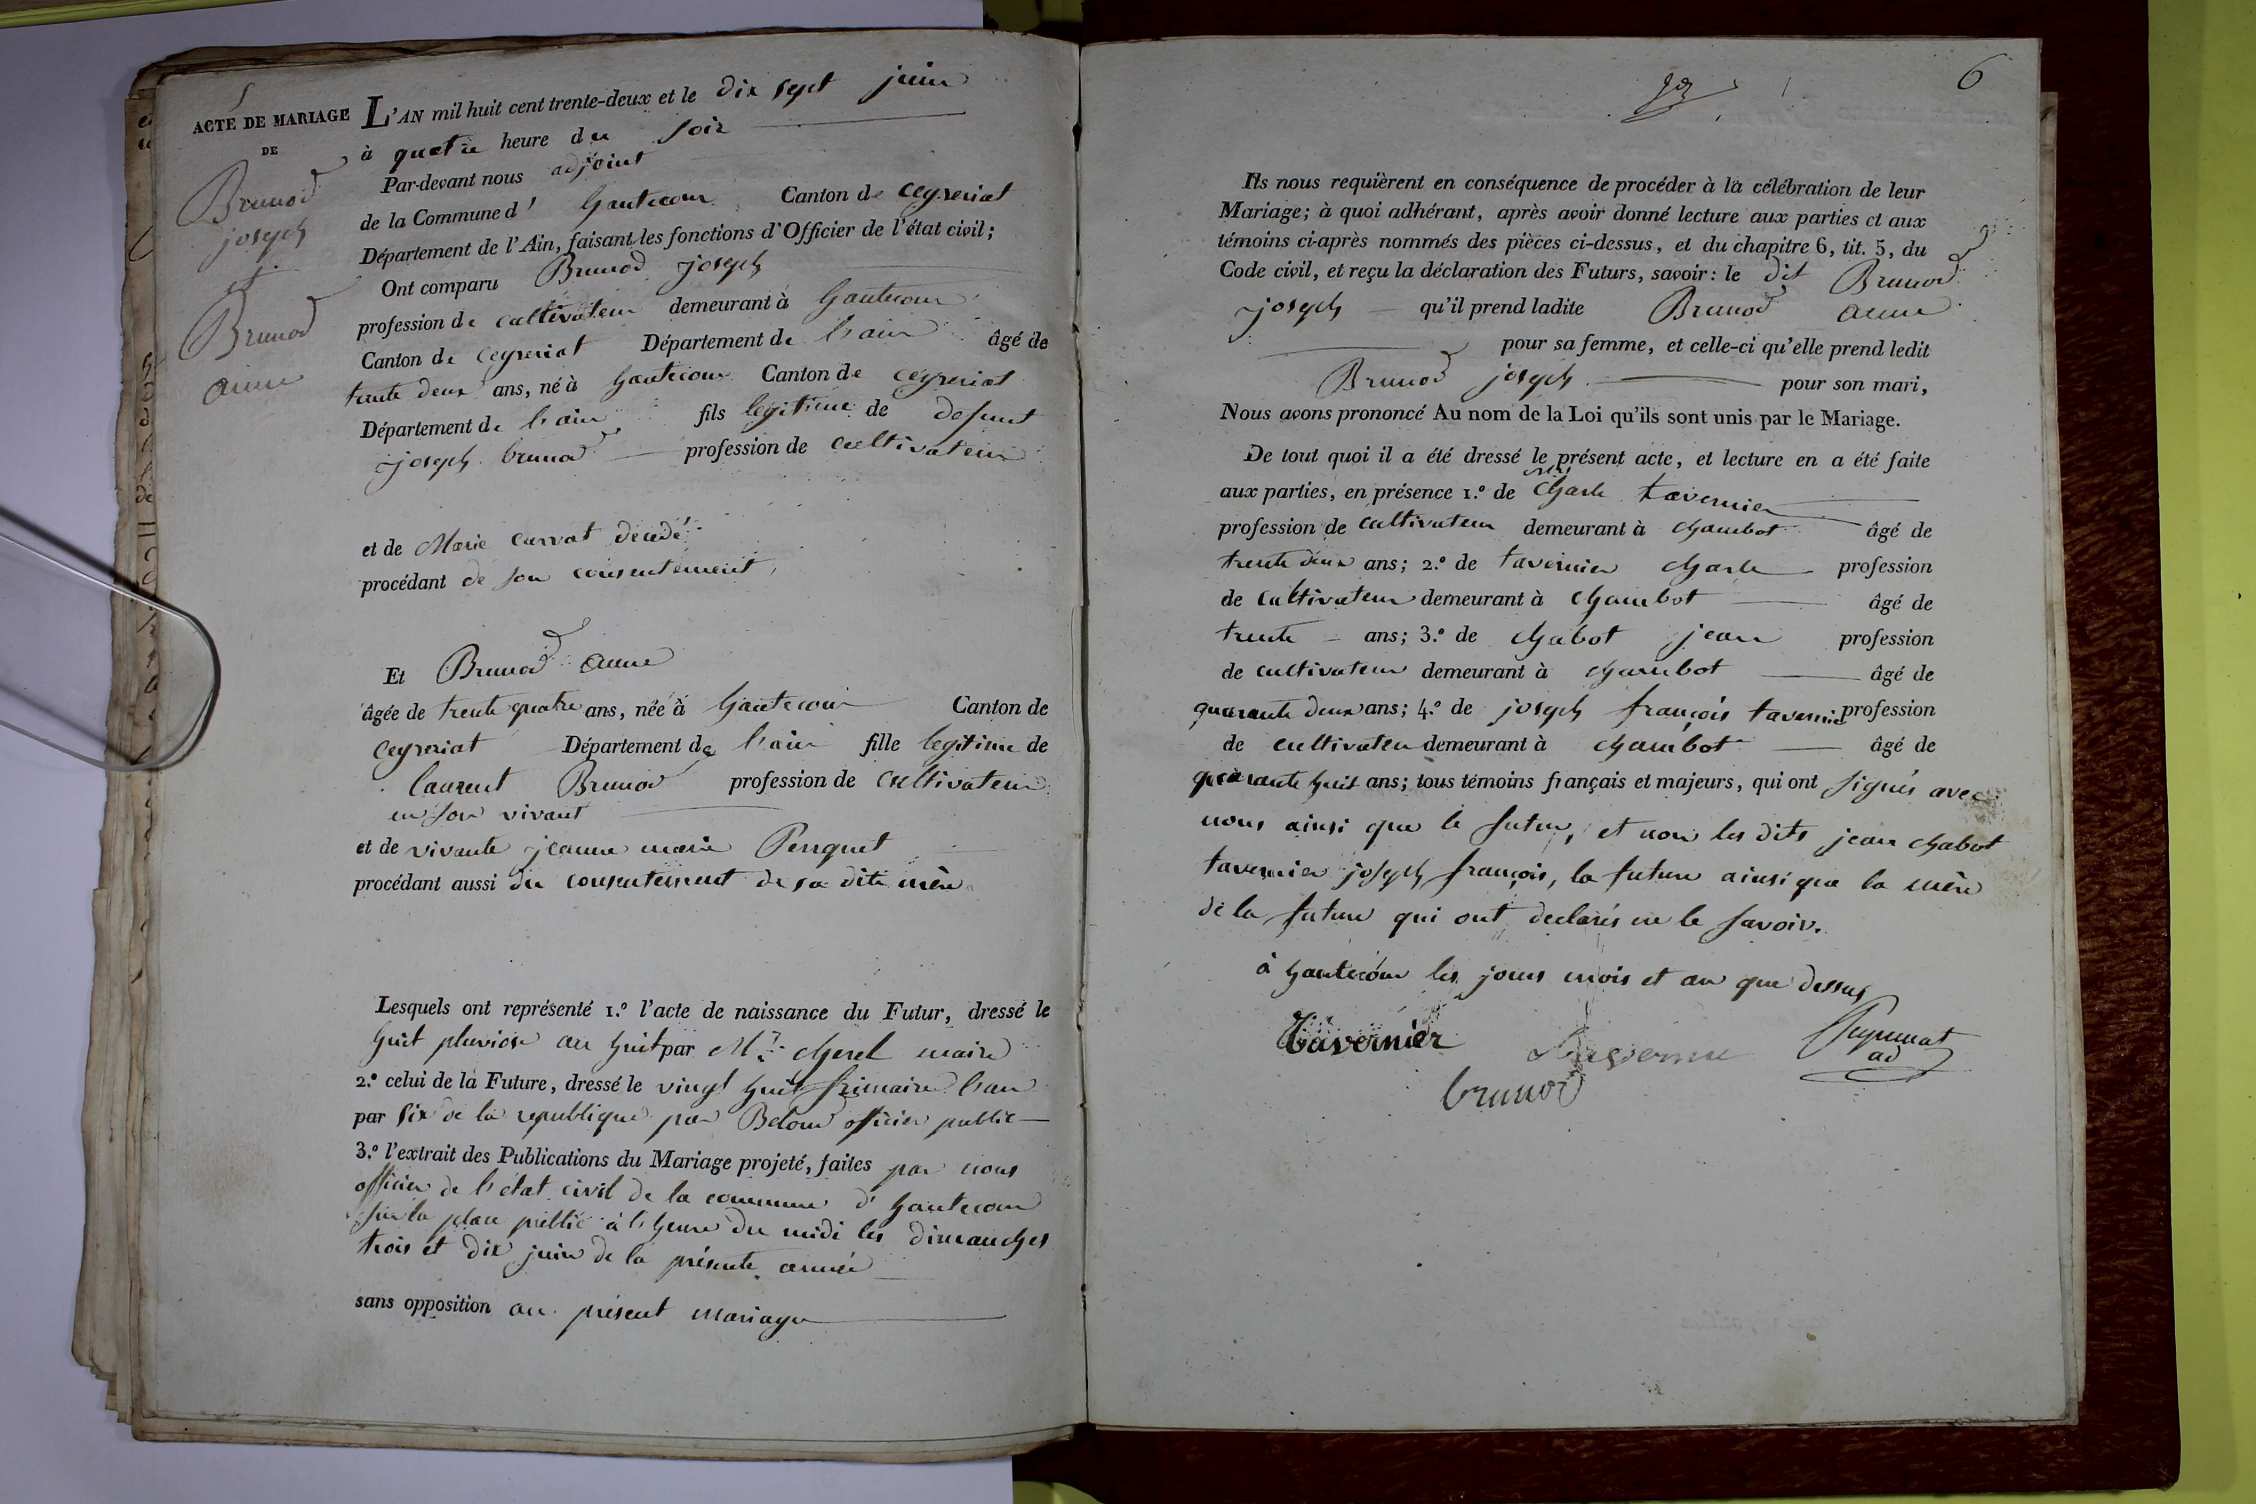 5
ACTE DE MARIAGE
DE
Brunod
joseph
et
Brunod
anne
L'AN mil huit cent trente-deux et le dix sept juin
à quatre heure du soir
Par-devant nous adjoint
de la Commune d' hautecour Canton de ceyzeriat
Département de l'Ain, faisant les fonctions d'Officier de l'état civil;
Ont comparu Brunod joseph
profession de cultivateur demeurant à hautecour
Canton de ceyzeriat Département de l'ain âgé de
trente deux ans, né à hautecour Canton de ceyzeriat
Département de l'ain fils legitime de defunt
joseph brunod profession de cultivateur
et de Marie curvat décédé
procédant de son consentement
Et Brunod anne
âgée de trente quatre ans, née à hautecour Canton de
ceyzeriat Département de l'ain fille legitime de
laurent Brunod profession de cultivateur
en son vivant
et de vivante jeanne marie Penquet
procédant aussi du consentement de sa dite mère
Lesquels ont représenté 1.º l'acte de naissance du Futur, dressé le
huit pluviose an huit par Mr. cherel maire
2.º celui de la Future, dressé le vingt huit frimaire l'an
par six de la republique par Beloud officier public
3.º l'extrait des Publications du Mariage projeté, faites par nous
officier de l'état civil de la commune d' hautecour
sur la place public à l'heure du midi les dimanches
trois et dix juin de la présente année
sans opposition au présent mariage
6
Ils nous requièrent en conséquence de procéder à la célébration de leur
Mariage; à quoi adhérant, après avoir donné lecture aux parties et aux
témoins ci-après nommés des pièces ci-dessus, et du chapitre 6, tit. 5, du
Code civil, et reçu la déclaration des Futurs, savoir: le dit Brunod
joseph qu'il prend ladite Brunod anne
pour sa femme, et celle-ci qu'elle prend ledit
Brunod joseph pour son mari,
Nous avons prononcé Au nom de la Loi qu'ils sont unis par le Mariage.
De tout quoi il a été dressé le présent acte, et lecture en a été faite
aux parties, en présence 1.º de charle tavernier
profession de cultivateur demeurant à chambot âgé de
trente deux ans; 2.º de tavernier charle profession
de cultivateur demeurant à chambot âgé de
trente ans; 3.º de chabot jean profession
de cultivateur demeurant à chambot âgé de
quarante deux ans; 4.º de joseph françois tavernier profession
de cultivateu demeurant à chambot âgé de
quarante huit ans; tous témoins français et majeurs, qui ont signés avec
nous ainsi que le futur, et non les dits jean chabot
tavernier joseph françois, la future ainsi que la mère
de la future qui ont declarés ne le savoir.
à hautecour les jours mois et an que dessus
tavernier
brunod
ad